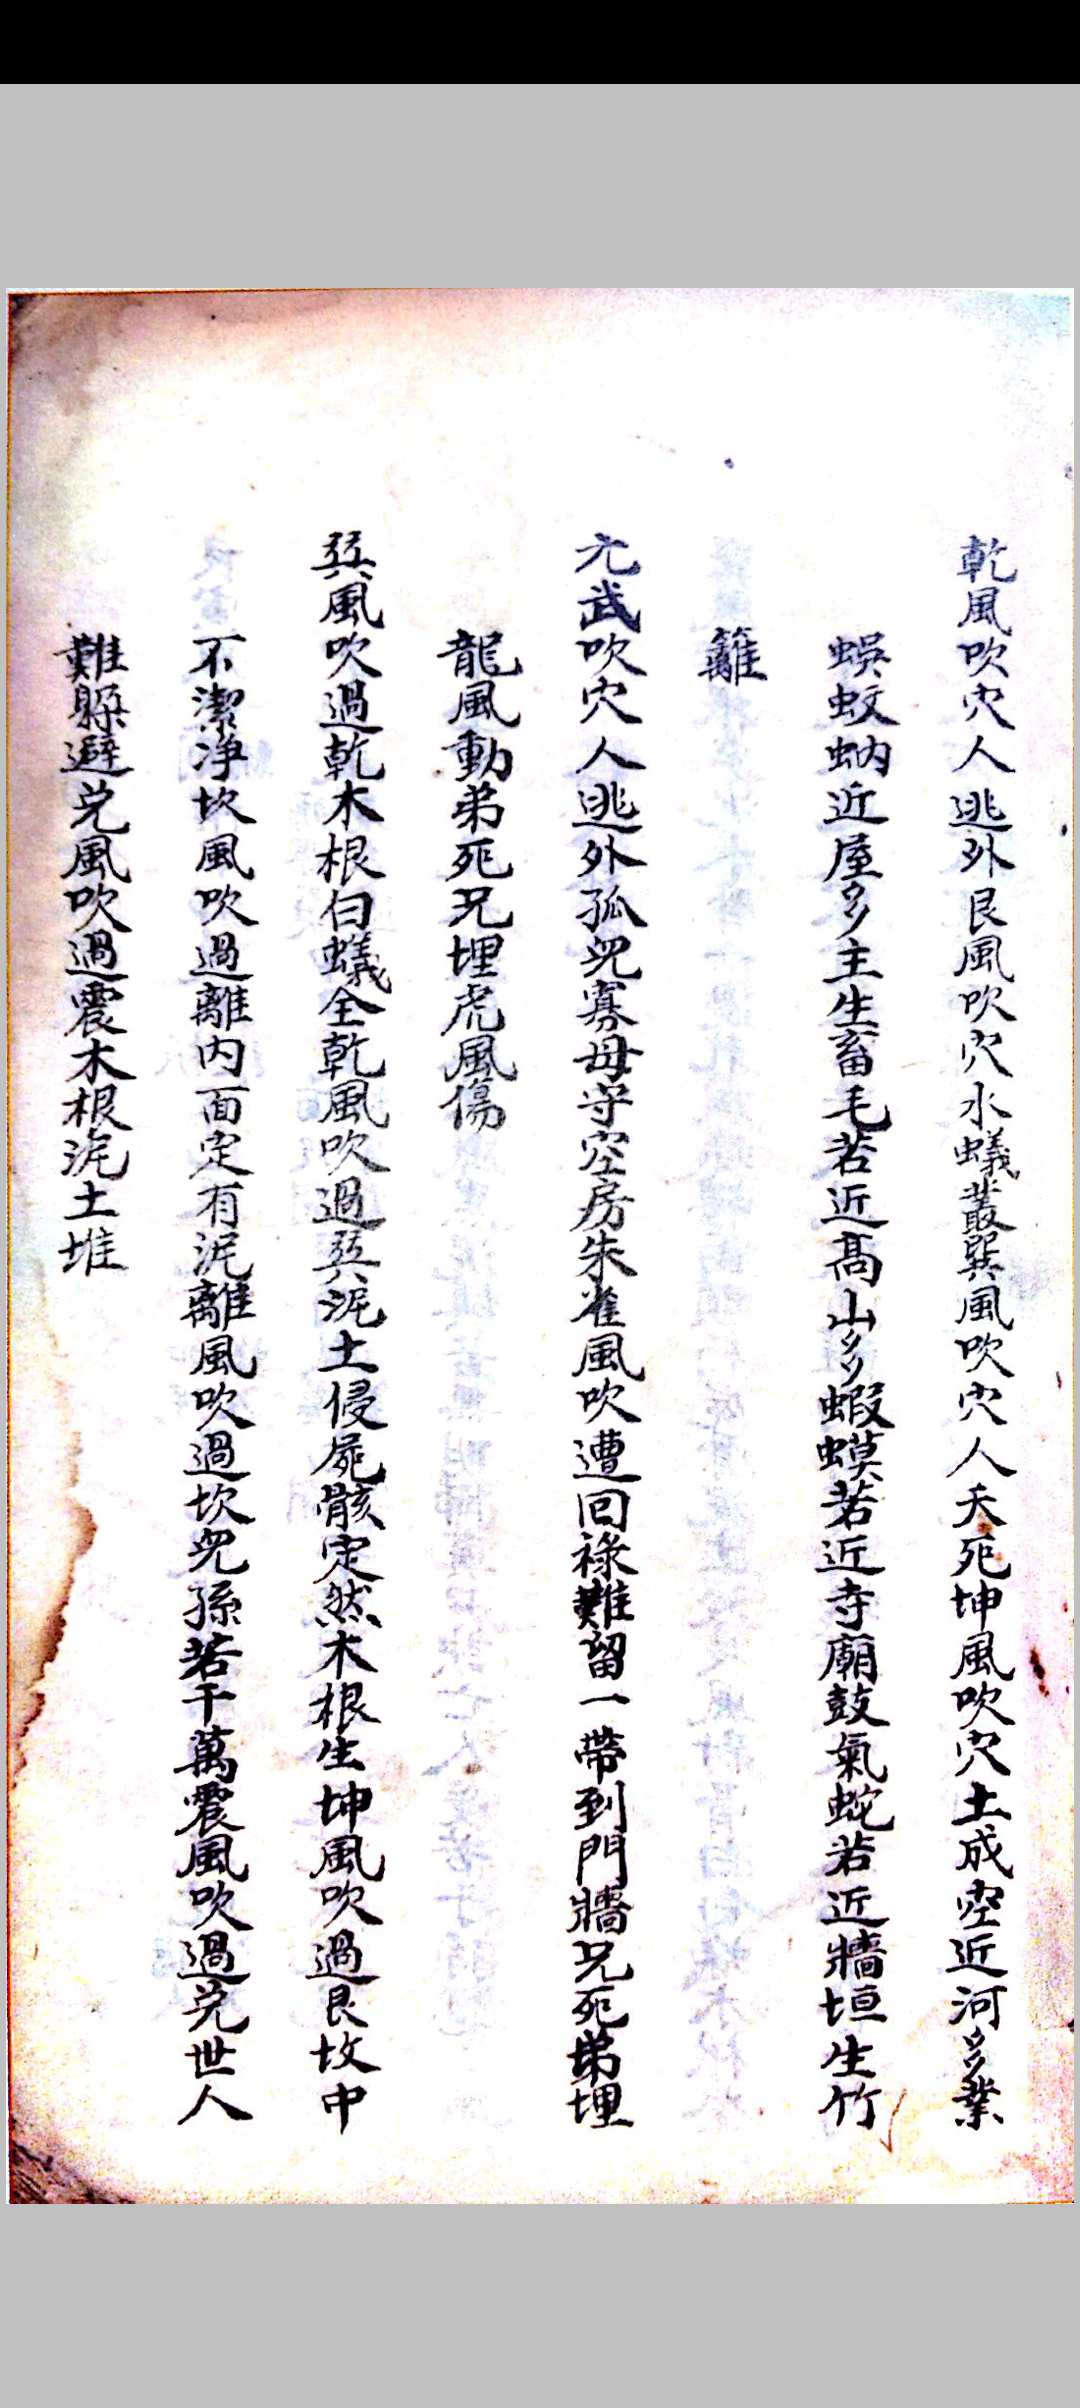 乾風吹穴人逃外艮風吹穴水蟻叢巽風吹穴人夭死坤風吹穴土成空近河多業
蜈蚊蚋近屋多主生畜毛若近髙山多蝦蟆若近寺廟鼓氣蛇若近牆垣生竹
籬
元武吹穴人逃外孤児寡母守空房朱雀風吹遭回祿難留一帶到門牆兄死弟埋
龍風動弟死兄埋虎風傷
巽風吹過乾木根白蟻全乾風吹過巽泥土侵屍骸定然木根生坤風吹過艮坟中
不潔净坎風吹過離内面定有泥離風吹過坎児孫若干萬震風吹過兑世人
難躲避兑風吹過震木根泥土堆